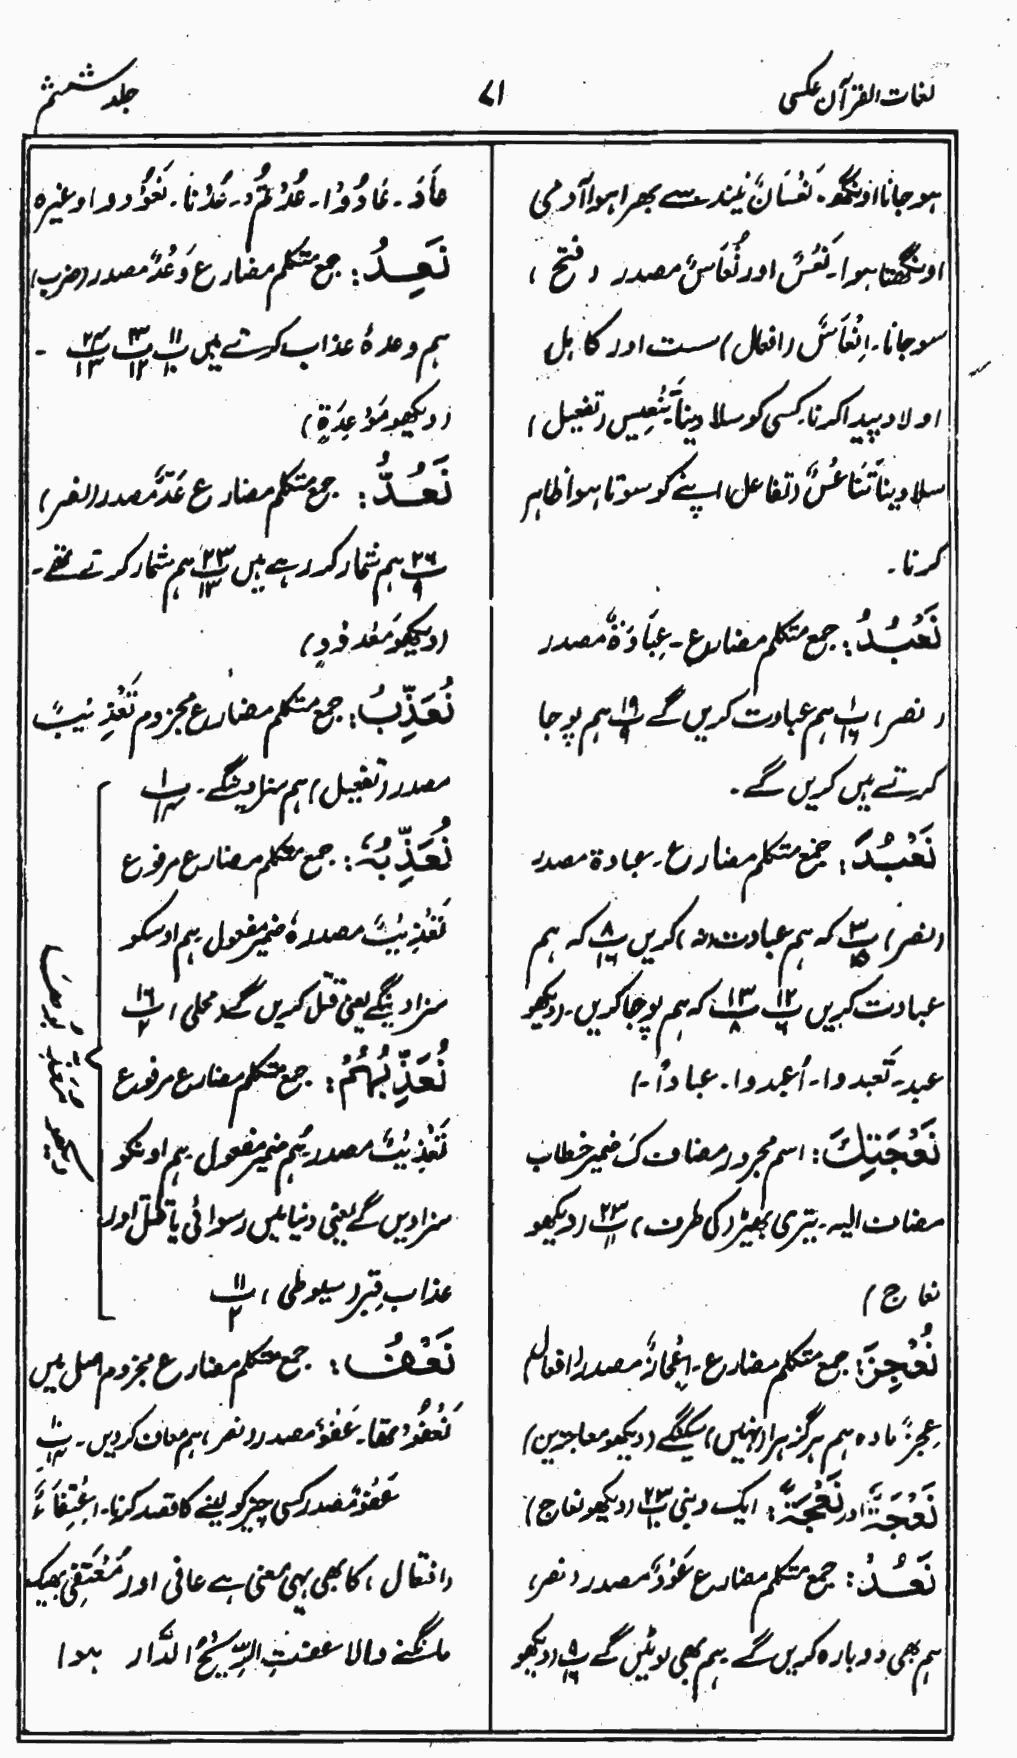 لغات القرآن عکسی
۷۱
جلد ششم
ہو جانا اونگھ۔ نَعْسَانٌ نیند سے بھرا ہوا آدمی
اونگھتا ہوا۔ نَعْسٌ اور نُعَاسٌ مصدر (فتح)
سو جانا۔ اِنْعَاسٌ (افعال) سست اور کاہل
اولاد پیدا کرنا۔ کسی کو سلا دینا تَنْعِیس (تفعیل)
سلا دینا تَنَاعُسٌ (تفاعل) اپنے کو سوتا ہوا ظاہر
کرنا۔
نَعْبُدُ: جمع متکلم مضارع۔ عِبَادَةٌ مصدر
(نصر) ۱/۱۶ پ ہم عبادت کریں گے ۱۹/۹ پ ہم پوجا
کرتے ہیں کریں گے۔
نَعْبُدَ: جمع متکلم مضارع۔ عبادة مصدر
(نصر) ۳/۱۵ پ کہ ہم عبادت (نہ) کریں ۸/۱۶ پ کہ ہم
عبادت کریں ۱۲/۶ پ ۱۳/۸ پ کہ ہم پوجا کریں۔ (دیکھو
عبد۔ تَعبدوا۔ اُعبدوا۔ عبادٌ۔)
نَعْجَتِكَ: اسم مجرور مضاف كَ ضمیر خطاب
مضاف الیہ۔ تیری بھیڑ (کی طرف) ۲۳/۱۱ پ (دیکھو
نعاج)
نُعْجِزَ: جمع متکلم مضارع۔ اِعْجَازٌ مصدر (افعال)
عِجزٌ مادہ ہم ہرگز ہرا (نہیں) سکینگے (دیکھو معاجزین)
نَعْجَةً اور نَعْجَةٌ: ایک دنبی ۲۳/۱۱ پ (دیکھو نعاج)
نَعُدْ: جمع متکلم مضارع عَوْدٌ مصدر (نصر)
ہم بھی دوبارہ کریں گے ہم بھی لوٹیں گے ۹/۱۶ پ (دیکھو
عَادَ۔ عَادُوْا۔ عُدْتُّمْ۔ عُدْنَا۔ تَعُوْدُوا وغیرہ
نَعِدُ: جمع متکلم مضارع وَعْدٌ مصدر (ضرب)
ہم وعدۂ عذاب کرتے ہیں ۱۱/۱۰ پ ۱۳/۱۲ پ ۲۴/۱۳ پ ۔
(دیکھو مَوْعِدَةٍ)
نَعُدُّ: جمع متکلم مضارع عَدٌّ مصدر (نصر)
۲۶/۹ پ ہم شمار کر رہے ہیں ۲۳/۱۳ پ ہم شمار کرتے تھے۔
(دیکھو معدودٍ)
نُعَذِّبُ: جمع متکلم مضارع مجزوم تَعْذِیْبٌ
مصدر (تفعیل) ہم سزا دینگے۔
نُعَذِّبُهٗ: جمع متکلم مضارع مرفوع
تَعْذِیْبٌ مصدر هٗ ضمیر مفعول ہم اوسکو
سزا دینگے یعنی قتل کریں گے (محلی) ۱۶/۲ پ
نُعَذِّبُهُمْ: جمع متکلم مضارع مرفوع
تَعْذِیْبٌ مصدر هُم ضمیر مفعول ہم اونکو
سزا دیں گے یعنی دنیا میں رسوائی یا قتل اور
عذاب قبر (سیوطی) ۱۱/۲ پ
نَعْفُ: جمع متکلم مضارع مجزوم اصل میں
نَعْفُوْ تھا۔ عَفْوٌ مصدر (نصر) ہم معاف کر دیں۔
عَفْوٌ مصدر کسی چیز کو لینے کا قصد کرنا۔ اِعْتِفَاءٌ
(افتعال) کا بھی یہی معنی ہے عافی اور مُعْتَفِی بھیک
مانگنے والا عفتِ الرِّیْحُ الدَّارَ ہوا